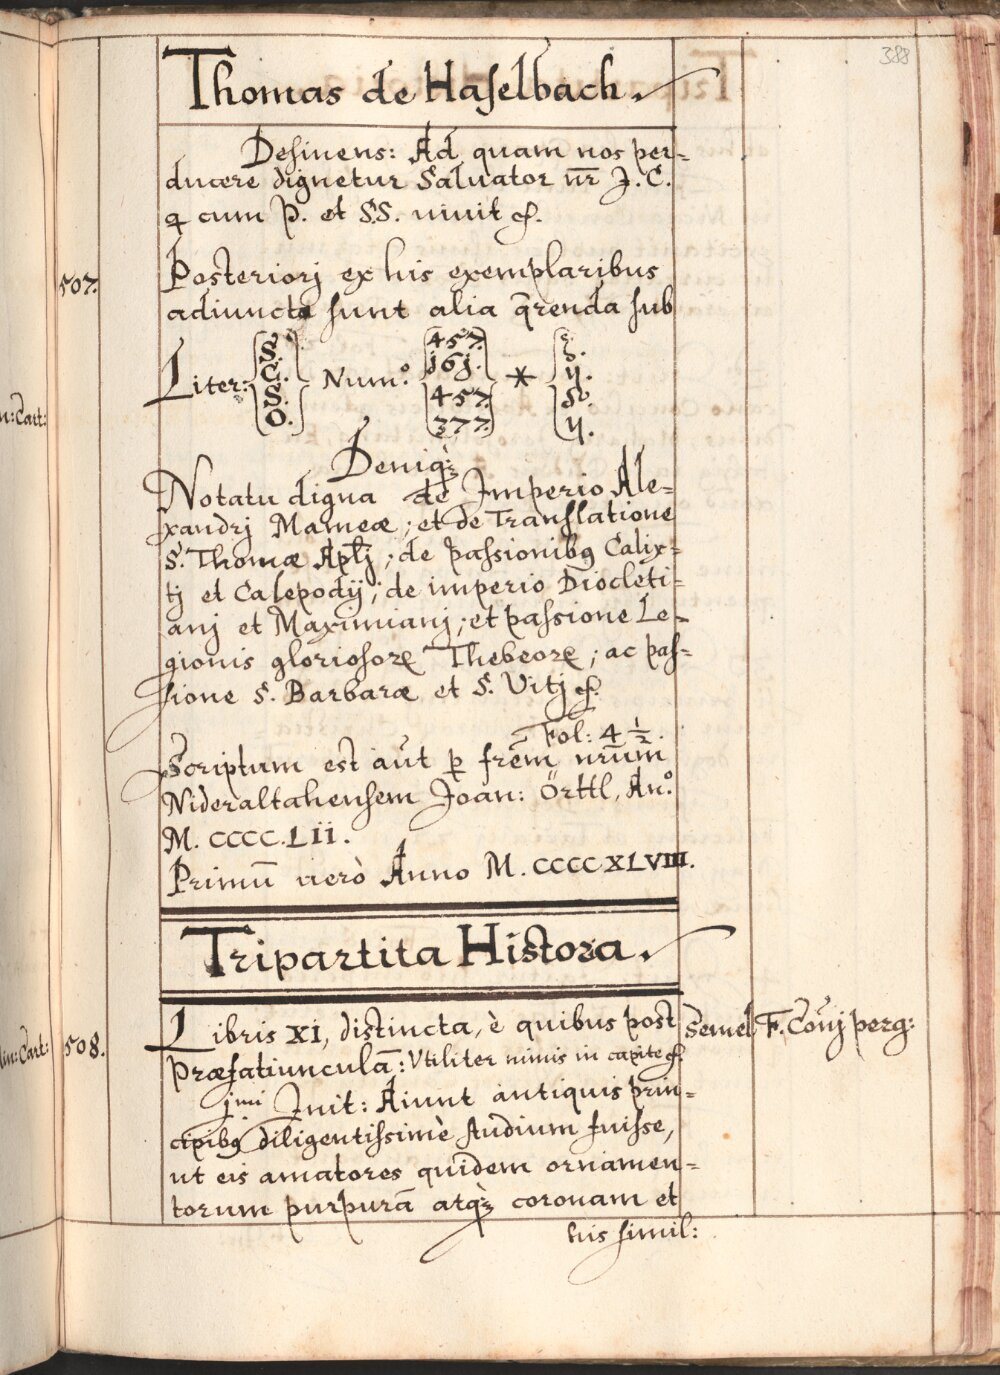 388
Thomas de Haselbach.
Desinens: Ad quam nos per-
ducere dignetur Saluator nr̄ J. C.
q cum P. et S.S. uiuit &.
507. Posteriorj ex his exemplaribus
adiuncta sunt alia q̄renda sub
Liter: { S. C. S. O. } Num.º { 457. j6j. 457. 377. } * { 3. 4. 50. 4. }
n: Cart:
Deniq;
Notatu digna de Imperio Ale-
xandrj Mameæ; et de Translatione
S. Thomæ Aplj; de passionibꝰ Calix-
tj et Calepodij; de imperio Diocleti-
anj et Maximianj; et passione Le-
gionis gloriosorꝝ Thebeorꝝ; ac pas-
sione S. Barbaræ et S. Vitj &.
Fol: 4 ½.
Scriptum est aut̄ ꝑ frēm nrūm
Nideraltahensem Joan: Örttl, An.º
M. CCCC.LII.
Primū uerò Anno M. CCCCXLVIII.
Tripartita Histora.
in: Cart: 508. Libris XI, distincta, è quibus post Semel F. Couj perg:
Præfatiunculā: Vtiliter nimis in capite &.
jmi Init: Aiunt antiquis prin-
cipibꝰ diligentissimè studium fuisse,
ut eis amatores quidem ornamen-
torum purpurā atq; coronam et
his simil: